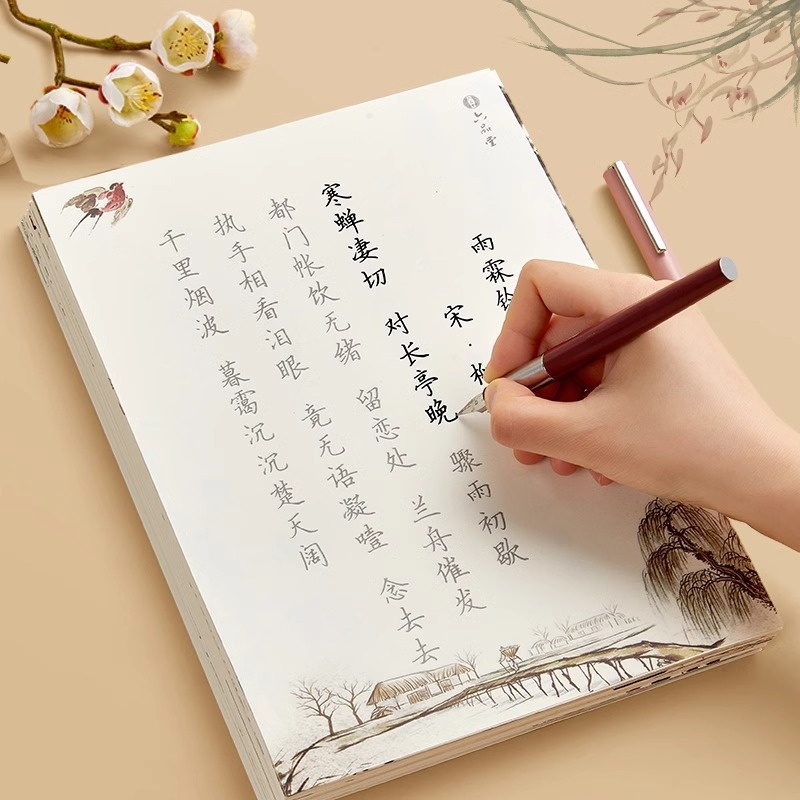 六品堂
雨霖铃
宋·
寒蝉凄切 对长亭晚 骤雨初歇
都门帐饮无绪 留恋处 兰舟催发
执手相看泪眼 竟无语凝噎 念去去
千里烟波 暮霭沉沉楚天阔